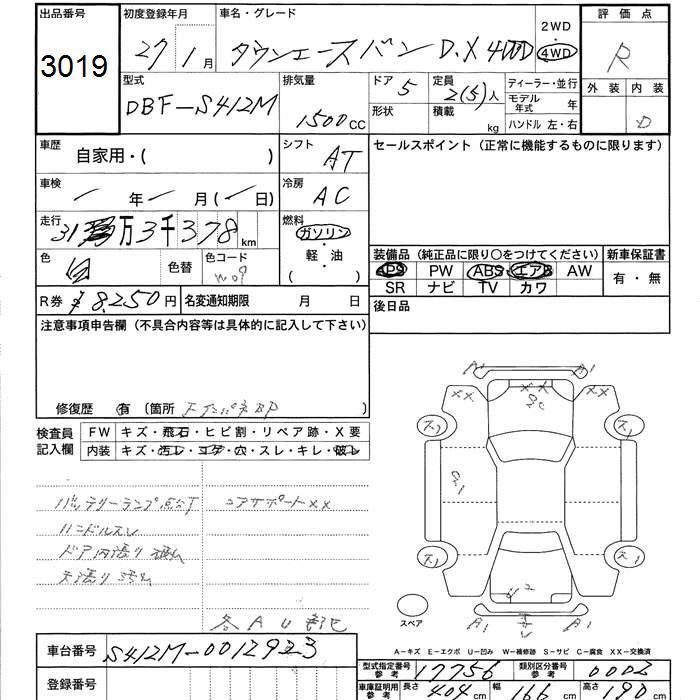 出品番号
3019
初度登録年月
27 1月
車名・グレード
タウンエースバン D.X 4WD
2WD
・
4WD
評価点
R
外装 内装
D
型式
DBF-S412M
排気量
1500 CC
ドア 5
形状
定員 2(5)人
積載 kg
ディーラー・並行
モデル年式 年
ハンドル 左・右
車歴
自家用・( )
シフト
AT
セールスポイント(正常に機能するものに限ります)
車検
年 月( 日)
冷房
AC
走行
31万3千378km
燃料
ガソリン
・
軽・油
( )
色
白
色替
色コード
W09
装備品(純正品に限り○をつけてください)
新車保証書
APS PW ABS エアB AW
有・無
SR ナビ TV カワ
R券 ¥8,250円
名変通知期限 月 日
後日品
注意事項申告欄(不具合内容等は具体的に記入して下さい)
修復歴 有 (箇所 Fインパネ BP )
検査員記入欄
FW キズ・飛石・ヒビ割・リペア跡・X要
内装 キズ・汚レ・コゲ・穴・スレ・キレ・破レ
バッテリーランプ点灯
コアサポートXX
ハンドルスレ
ドア内張り
天張り
各AU
XX
XX
A1
A1
A1
スペア
A−キズ E−エクボ U−凹み W−補修跡 S−サビ C−腐食 XX−交換済
車台番号
S412M-0012923
登録番号
型式指定番号
参考
17756
類別区分番号
参考
0002
車庫証明用
参考
長さ 404cm
幅 166cm
高さ 190cm